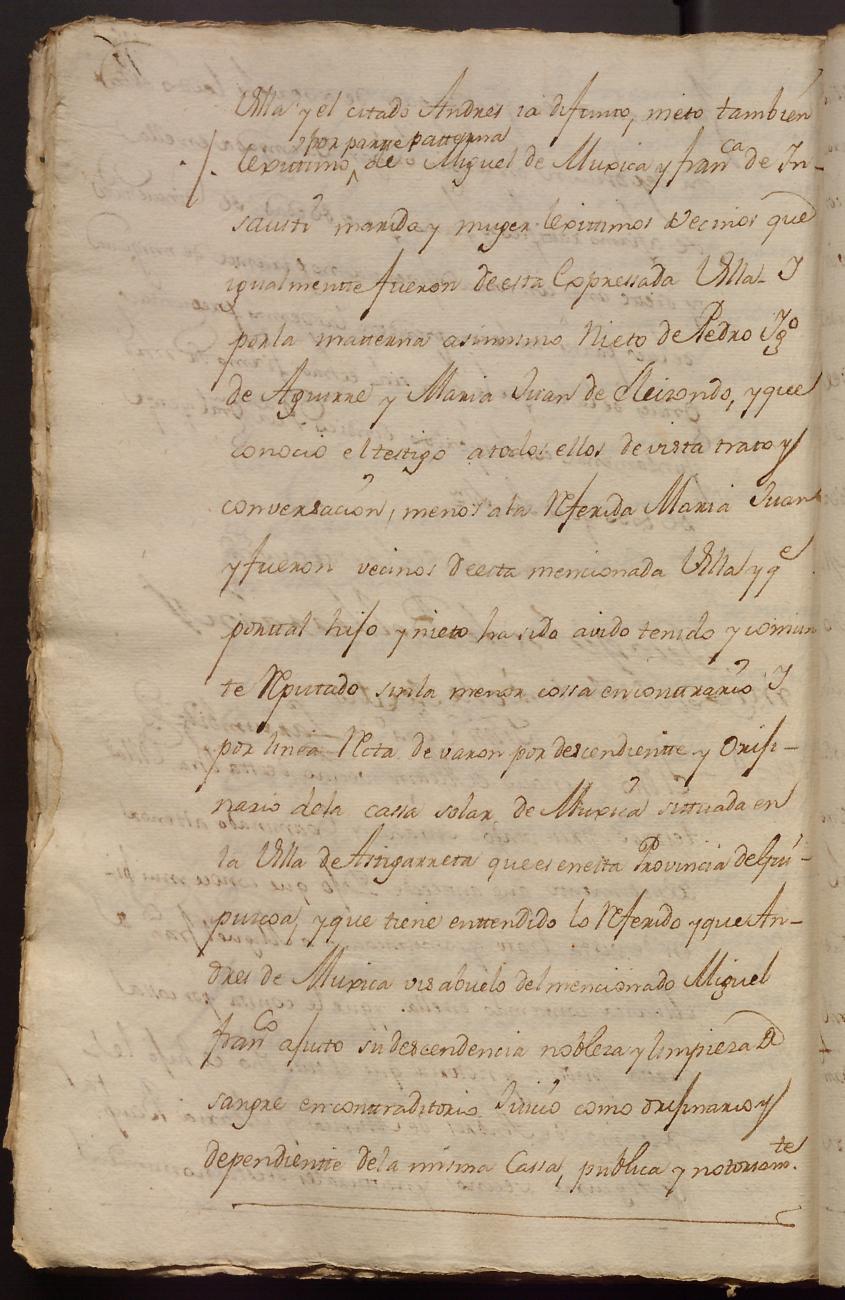 Villa y el citado Andres ia difunto, nieto tambien
por partte patterna
lexittimo, de Miguel de Muxica y fran.ca de In-
sausti marido y muger lexittimos Vecinos que
igualmentte fueron de esta Expressada Villa- Y
por la matterna asimismo Nieto de Pedro Ygo
de Aguirre y Maria Juan de Eleizondo, y que
conocio el testigo a todos ellos de vista trato y
conversacion, menos a la Referida Maria Juan
y fueron vecinos de esta mencionada Villa y qe
por ttal hijo y nieto ha sido avido tenido y comun
te Reputado sin la menor cossa en conttrario Y
por linea Recta de varon por descendientte y Oriji-
nario de la cassa solar de Muxica sittuada en
la Villa de Astigarreta que es en esta Provincia de Gui-
puzcoa, y que tiene enttendido lo Referido y que An-
dres de Muxica visabuelo del mencionado Miguel
Franco ajusto su descendencia nobleza y limpieza de
sangre en conttraditorio Juicio como orijinario y
dependientte de la misma Cassa, publica y notoriamte.